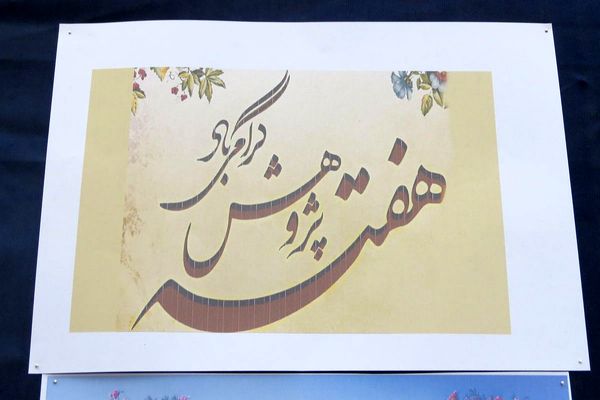 هفته
پژوهش
گرامی باد